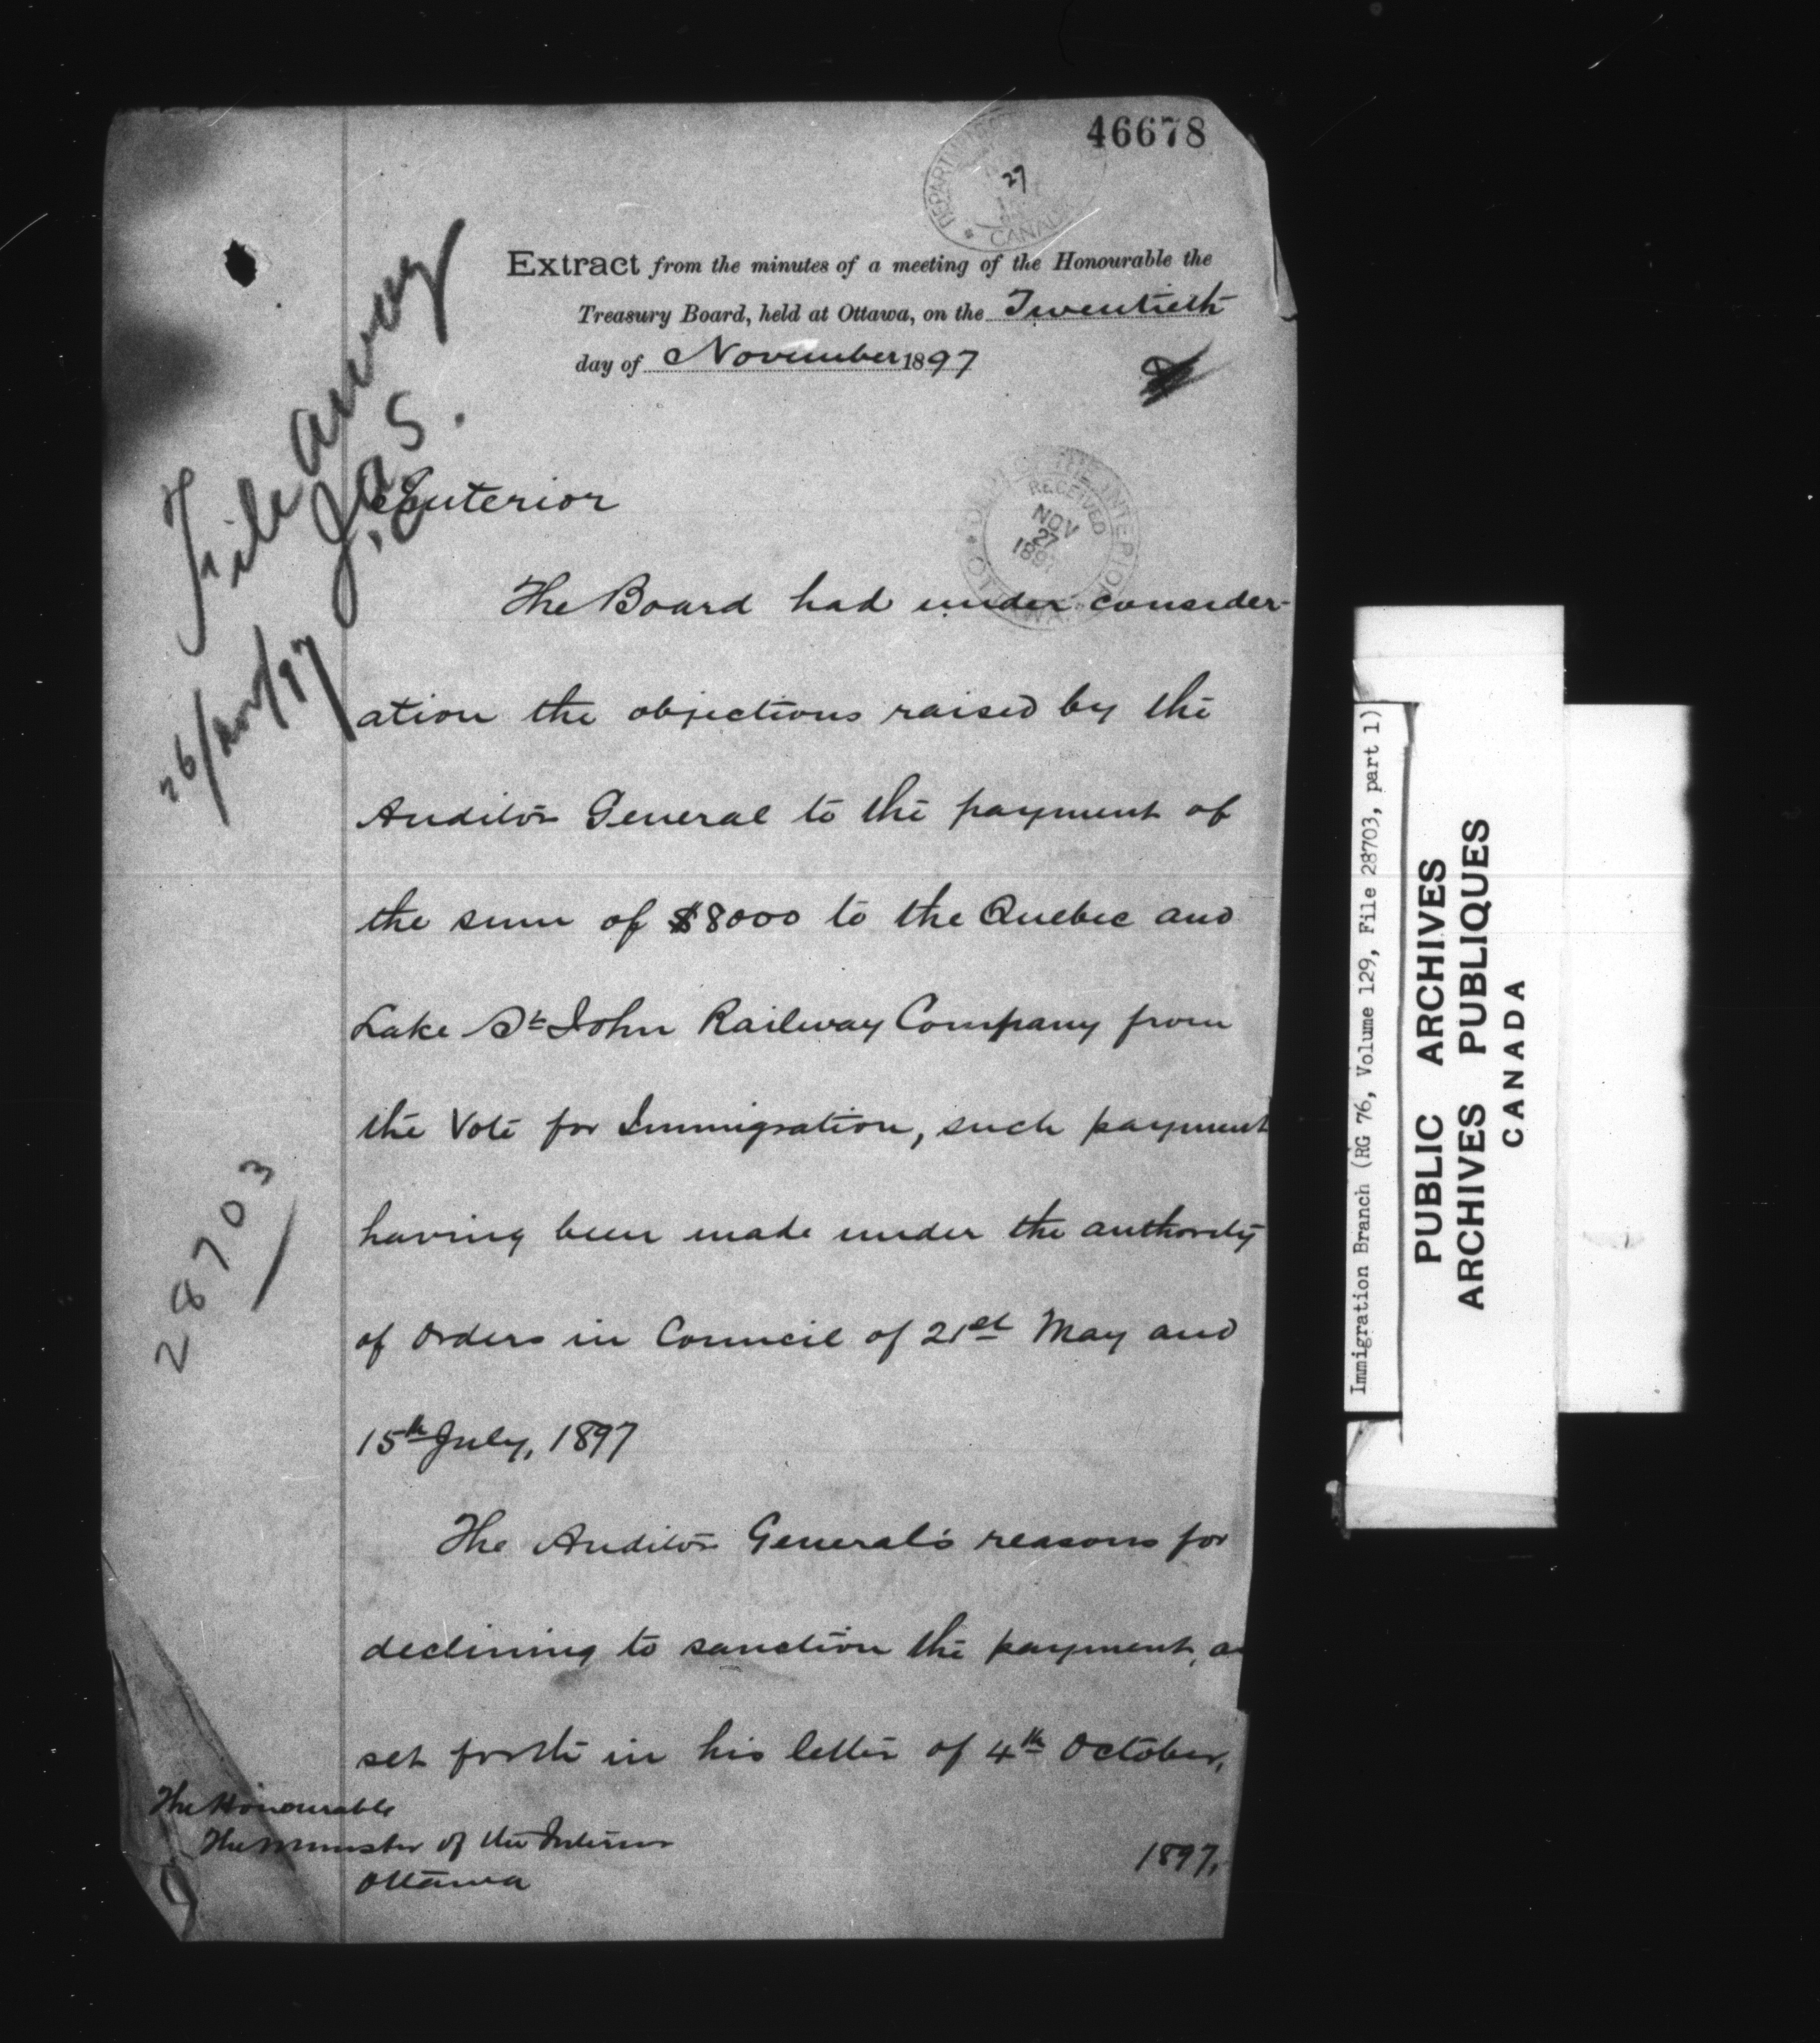 46678
DEPARTM
27
CANADA
Extract from the minutes of a meeting of the Honourable the
Treasury Board, held at Ottawa, on the Twentieth
day of November 1897
File away
J.A.S.
26/Nov/97
Interior
DEPT OF THE INTERIOR
RECEIVED
NOV
27
1897
OTTAWA
The Board had under consider-
ation the objections raised by the
Auditor General to the payment of
the sum of $8000 to the Quebec and
Lake St John Railway Company from
the Vote for Immigration, such payment
having been made under the authority
of Orders in Council of 21st May and
15th July, 1897
28703
The Auditor General's reasons for
declining to sanction the payment, as
set forth in his letter of 4th October,
1897,
The Honourable
The Minister of the Interior
Ottawa
Immigration Branch (RG 76, Volume 129, File 28703, part 1)
PUBLIC ARCHIVES
ARCHIVES PUBLIQUES
CANADA